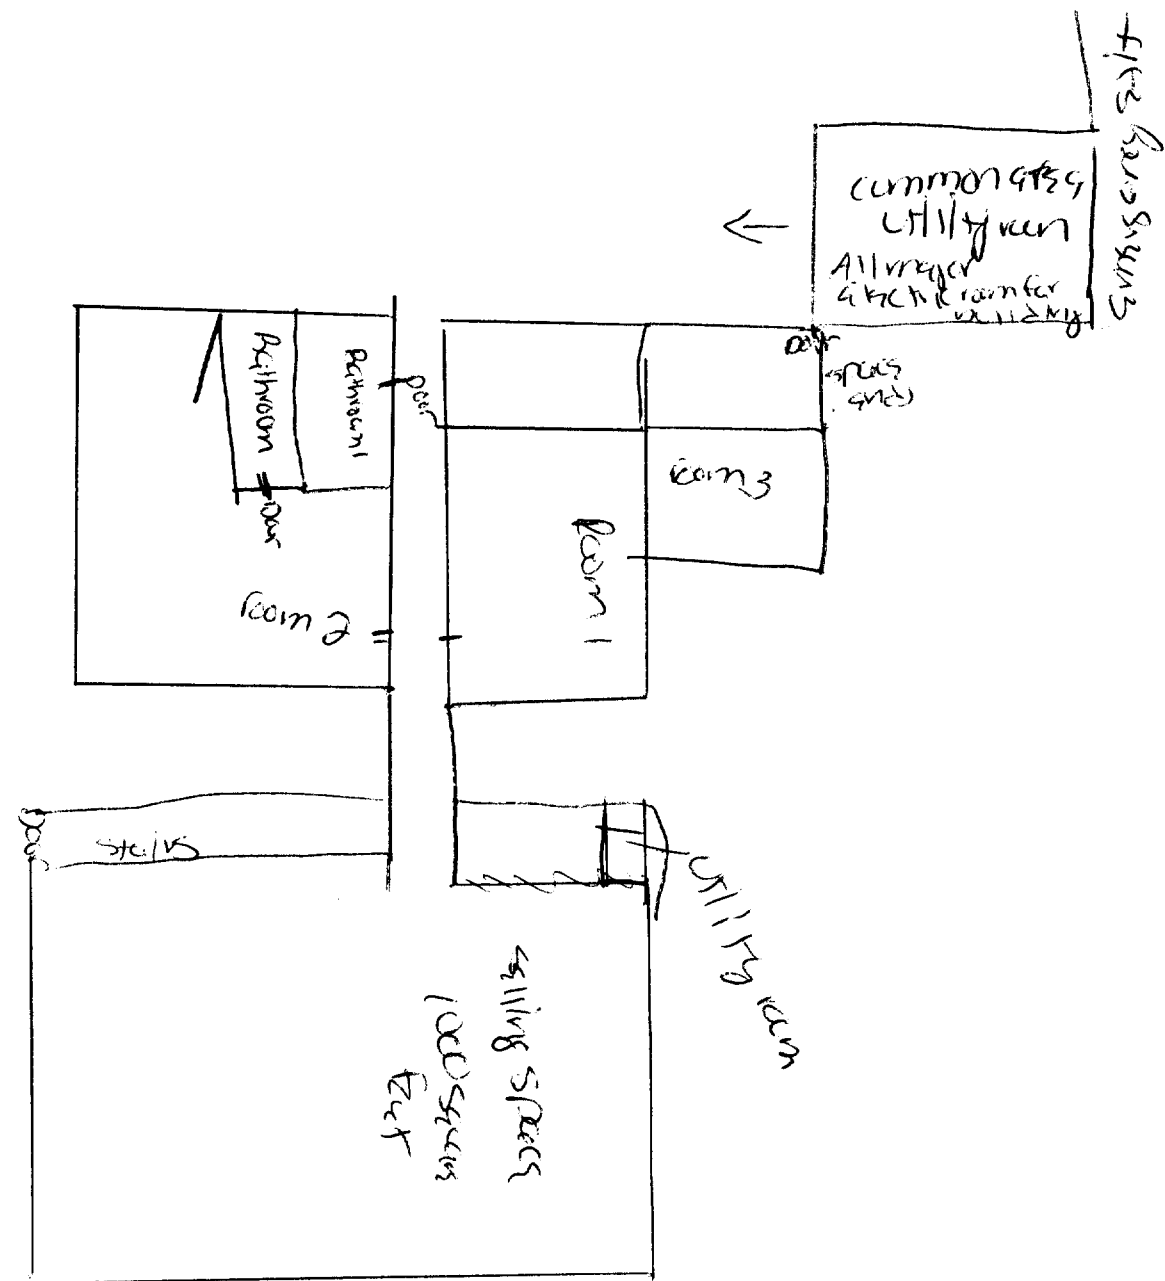 common area
utility room
All major
electric room for
Door
space
ends
Bathroom
Bathroom 1
Door
Door
room 3
Room 1
room 2
Door
Stairs
utility room
selling space
1000 square
Feet